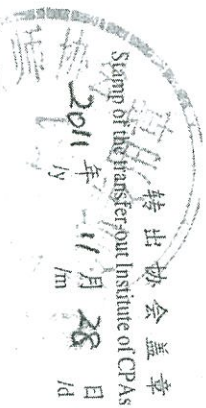 转出协会盖章
Stamp of the transfer-out Institute of CPAs
2011年11月28日
/y /m /d